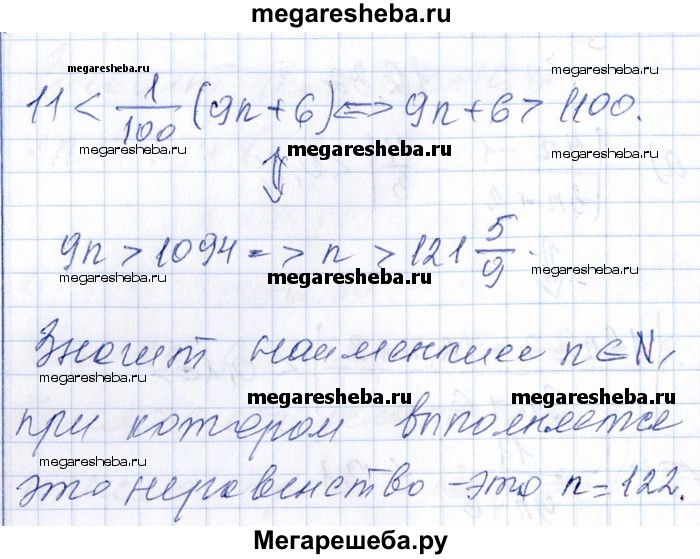 megaresheba.ru
megaresheba.ru
megaresheba.ru
11 < 1/100 (9n + 6) <=> 9n + 6 > 1100.
megaresheba.ru
megaresheba.ru
megaresheba.ru
⇕
9n > 1094 => n > 121 5/9.
megaresheba.ru
megaresheba.ru
megaresheba.ru
Значит наименьшее n ∈ N,
megaresheba.ru
megaresheba.ru
при котором выполняется
megaresheba.ru
megaresheba.ru
это неравенство – это n = 122.
Мегарешеба.ру